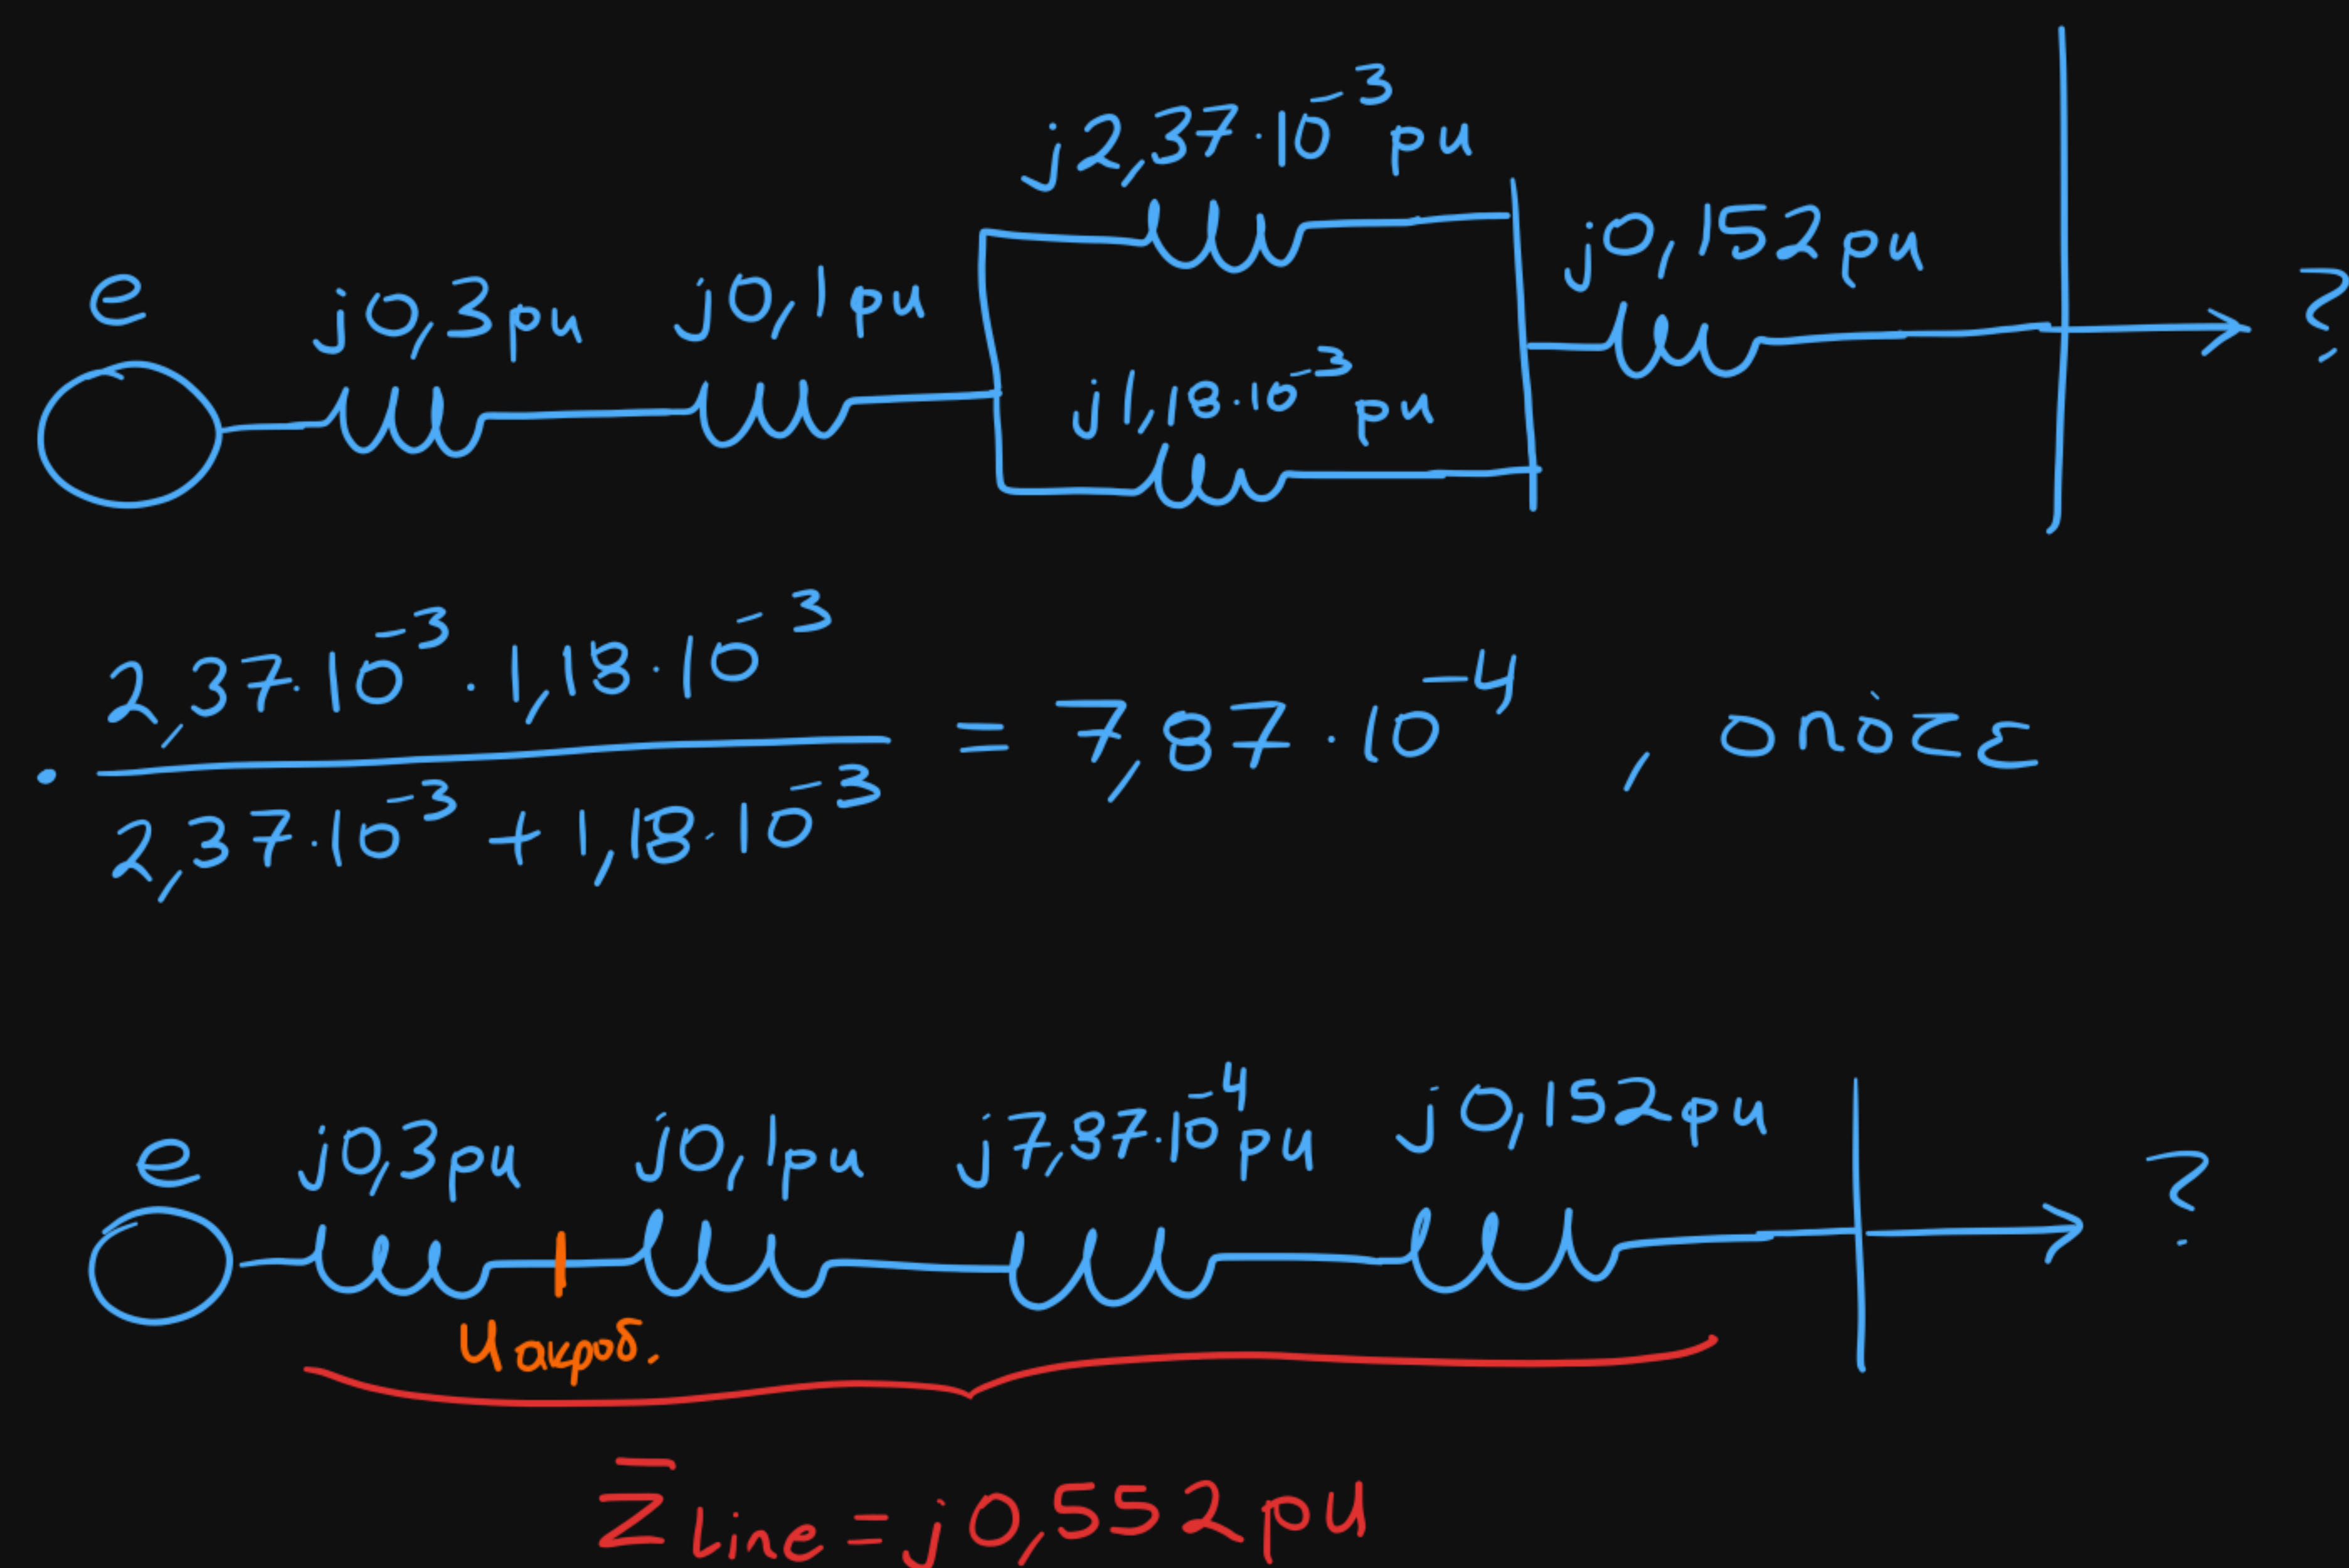 j2,37·10⁻³ pu
e j0,3pu j0,1pu j0,152pu ?
j1,18·10⁻³ pu
· (2,37·10⁻³ · 1,18·10⁻³) / (2,37·10⁻³ + 1,18·10⁻³) = 7,87·10⁻⁴ , οπότε
e j0,3pu j0,1pu j7,87·10⁻⁴ pu j0,152pu ?
uακροδ.
Z̅Line = j0,552pu